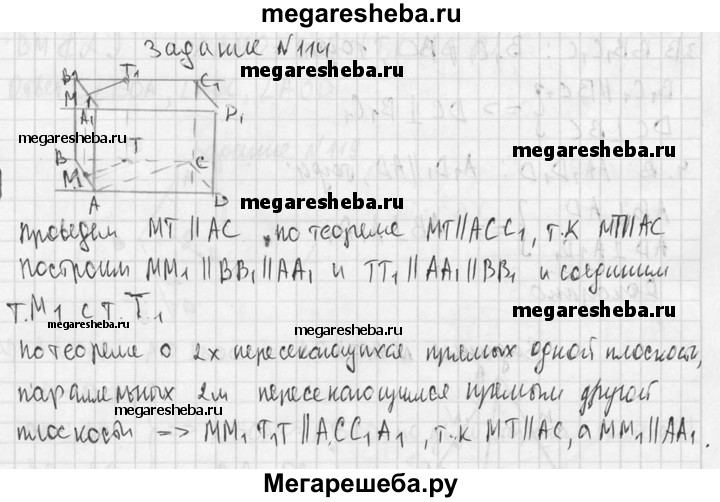 megaresheba.ru
Задание №114
megaresheba.ru
B1 T1 C1
M1
A1 D1
megaresheba.ru megaresheba.ru
B T C
M
megaresheba.ru
A D
проведем MT||AC по теореме MT||ACC1, т.к MT||AC
построим MM1||BB1||AA1 и TT1||AA1||BB1 и соединим
megaresheba.ru
т.M1 с т.T1
megaresheba.ru megaresheba.ru megaresheba.ru
по теореме о 2х пересекающихся прямых одной плоскости,
параллельных 2м пересекающимся прямым другой
megaresheba.ru
плоскости => MM1T1T||ACC1A1, т.к MT||AC, а MM1||AA1.
Мегарешеба.ру